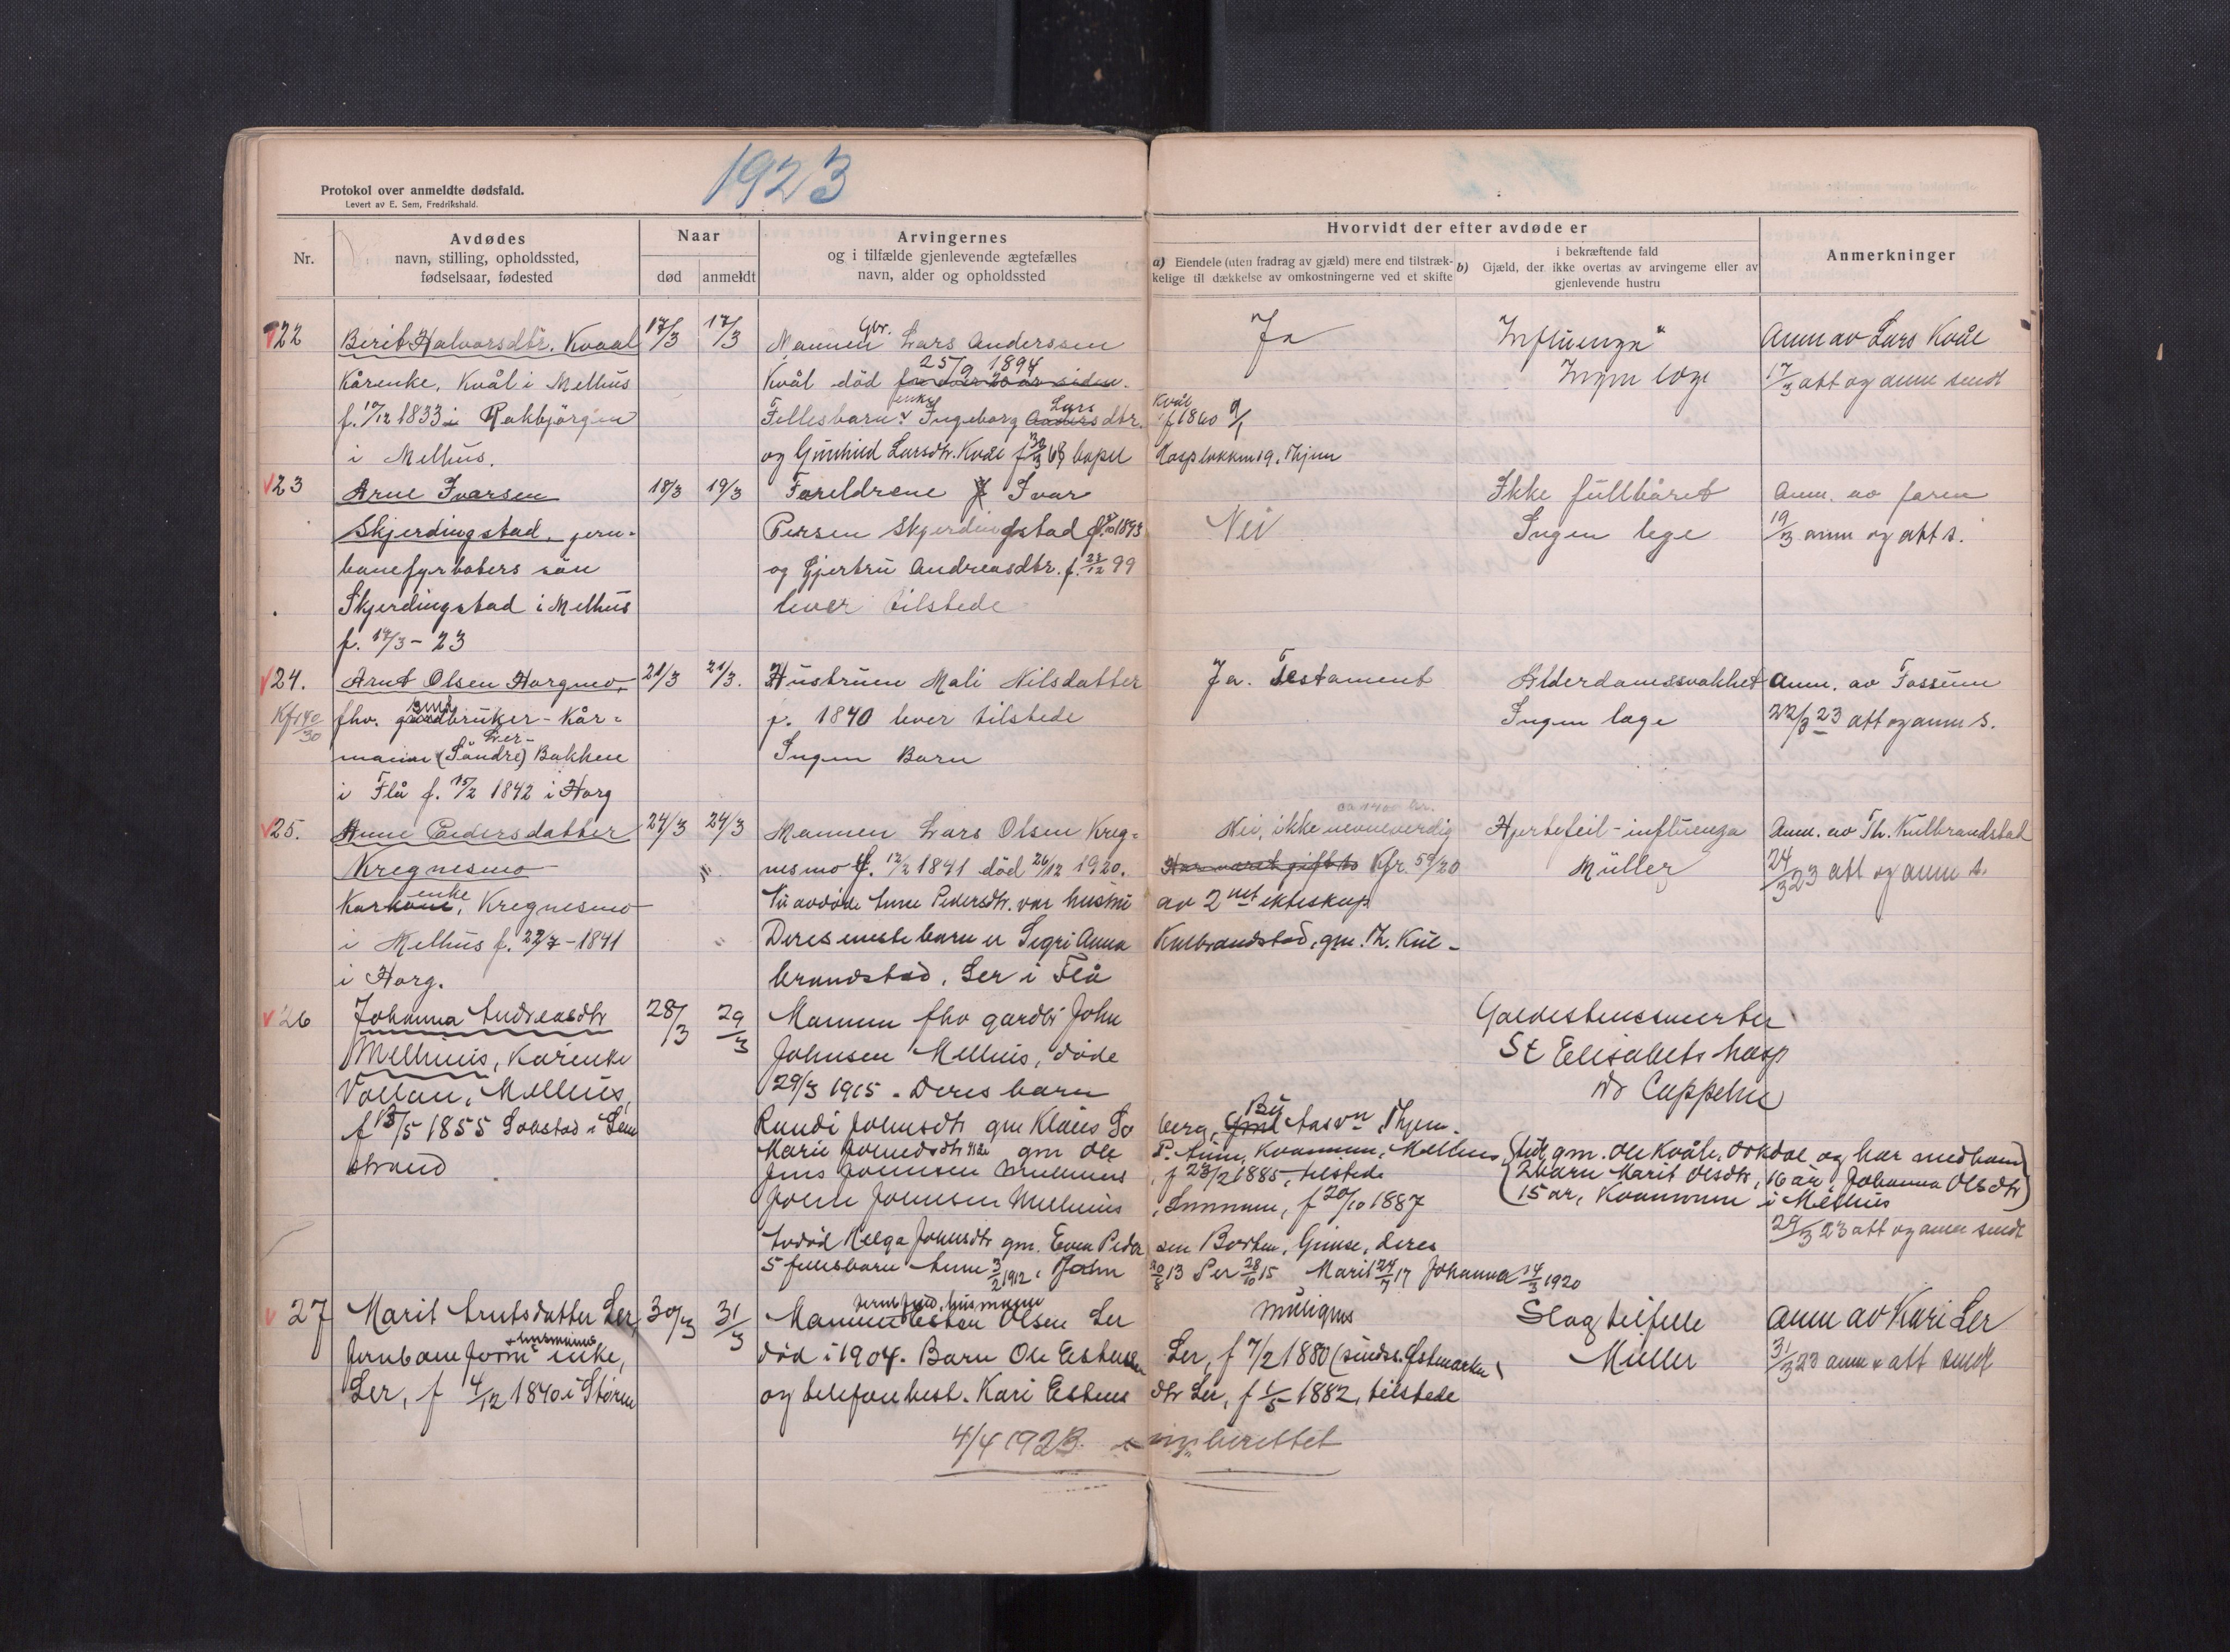 1923
Protokol over anmeldte dødsfald.
Levert av E. Sem, Fredrikshald.
Nr.
Avdødes
navn, stilling, opholdssted,
fødselsaar, fødested
Naar
død
anmeldt
Arvingernes
og i tilfælde gjenlevende ægtefælles
navn, alder og opholdssted
Hvorvidt der efter avdøde er
a) Eiendele (uten fradrag av gjæld) mere end tilstræk-
kelige til dækkelse av omkostningerne ved et skifte
b)
i bekræftende fald
Gjæld, der ikke overtas av arvingerne eller av
gjenlevende hustru
Anmerkninger
22
Berit Halvorsdtr. Kvaal
Kårenke, Kvål i Melhus
f. 10/12 1833 i Rakbjörgen
i Melhus.
17/3
17/3
Gbr.
Mannen Lars Anderssen
25/9 1894
Kvål död for over 20 år siden.
enke Lars
Fellesbarn: Ingeborg Andersdtr. Kvål f 1860 9/1
og Gunhild Larsdtr. Kvål f 30/3 68 bopel
Ja
Influenza
Ingen læge
Anm av Lars Kvål
17/3 att og anm sendt
23
Arne Ivarsen
Skjerdingstad, jern-
banefyrböters sön
Skjerdingstad i Melhus
f. 17/3 - 23
18/3
19/3
Foreldrene Ivar
Persen Skjerdingstad 1893
og Gjertru Andreasdtr. f. 28/12 99
lever tilstede
Nei
Ikke fullbåret
Ingen lege
Anm. av faren
19/3 anm og att s.
24.
Kfr 40/30
Arnt Olsen Horgmo,
fhv. gårdbruker - Kår-
Ler-
mann (Söndre) Bakken
i Flå f. 15/2 1842 i Horg
21/3
21/3.
Hustruen Mali Nilsdatter
f. 1840 lever tilstede
Ingen Barn
Ja. Testament
Alderdomssvakhet
Ingen læge
Anm. av Fossum
22/3 23 att og anm s.
25.
Anne Pedersdatter
Kregnesmo
enke
Karkone, Kregnesmo
i Melhus f. 22/7 - 1841
i Horg.
24/3
24/3
Mannen Lars Olsen Kreg-
nesmo f. 12/2 1841 död 26/12 1920.
Nu avdöde Anne Pedersdtr. var hustru
Deres eneste barn er Sigri Anna
brandstad, Ler i Flå
ca 1400 kr.
Nei, ikke nevneverdig
Har været gift to Kfr. 59/20
av 2net ekteskap
Kulbrandstad, gm. Th. Kul-
Hjertefeil - influenza
Müller
Anm. av Th. Kulbrandstad
24/3 23 att og anm s.
26
Johanna Andreasdtr
Melhuus, Kårenke
Vollan, Melhus,
f 13/5 1855
strand
28/3
29/3
Mannen fhv gardbr John
Johnsen Melhus, döde
29/3 1915. Deres barn
Randi Johnsdtr gm Klaus So berg, By Aasvn, Thjem.
Marie Johnsdtr gm Ole P. Aune, Kvammen, Melhus,
Jens Johnsen Melhuus, f 23/2 1885, tilstede
John Johnsen Melhuus, f 20/10 1887
Avdöd Helga Johnsdtr gm. Even Peder sen Borten, Gimse, deres
5 fellesbarn Anne 3/2 1912, John 20/8 13 Per 28/10 15 Marit 24/7 17 Johanna 14/3 1920
St Elisabets hosp
Dr Cappelen
gm. Ole Kvåle, Orkdal og har med ham
2 barn Marit Olsdtr, 16 år, Johanna Olsdtr
15 år, Kvammen i Melhus
29/3 23 att og anm sendt
27
Marit Arntsdatter Ler,
husmanns
Jernbaneform enke,
Ler, f 4/12 1840 i Stören
30/3
31/3
husmann
Mannen Esten Olsen Ler
död i 1904. Barn Ole Estensen Ler, f 7/2 1880 (sindss. Östmarken)
og telefonbest. Kari Estens dtr Ler, f 1/5 1882, tilstede
muligens
Slagtilfelle
Müller
anm av Kari Ler
31/3 23 anm & att sendt
4/4 1923. innberettet